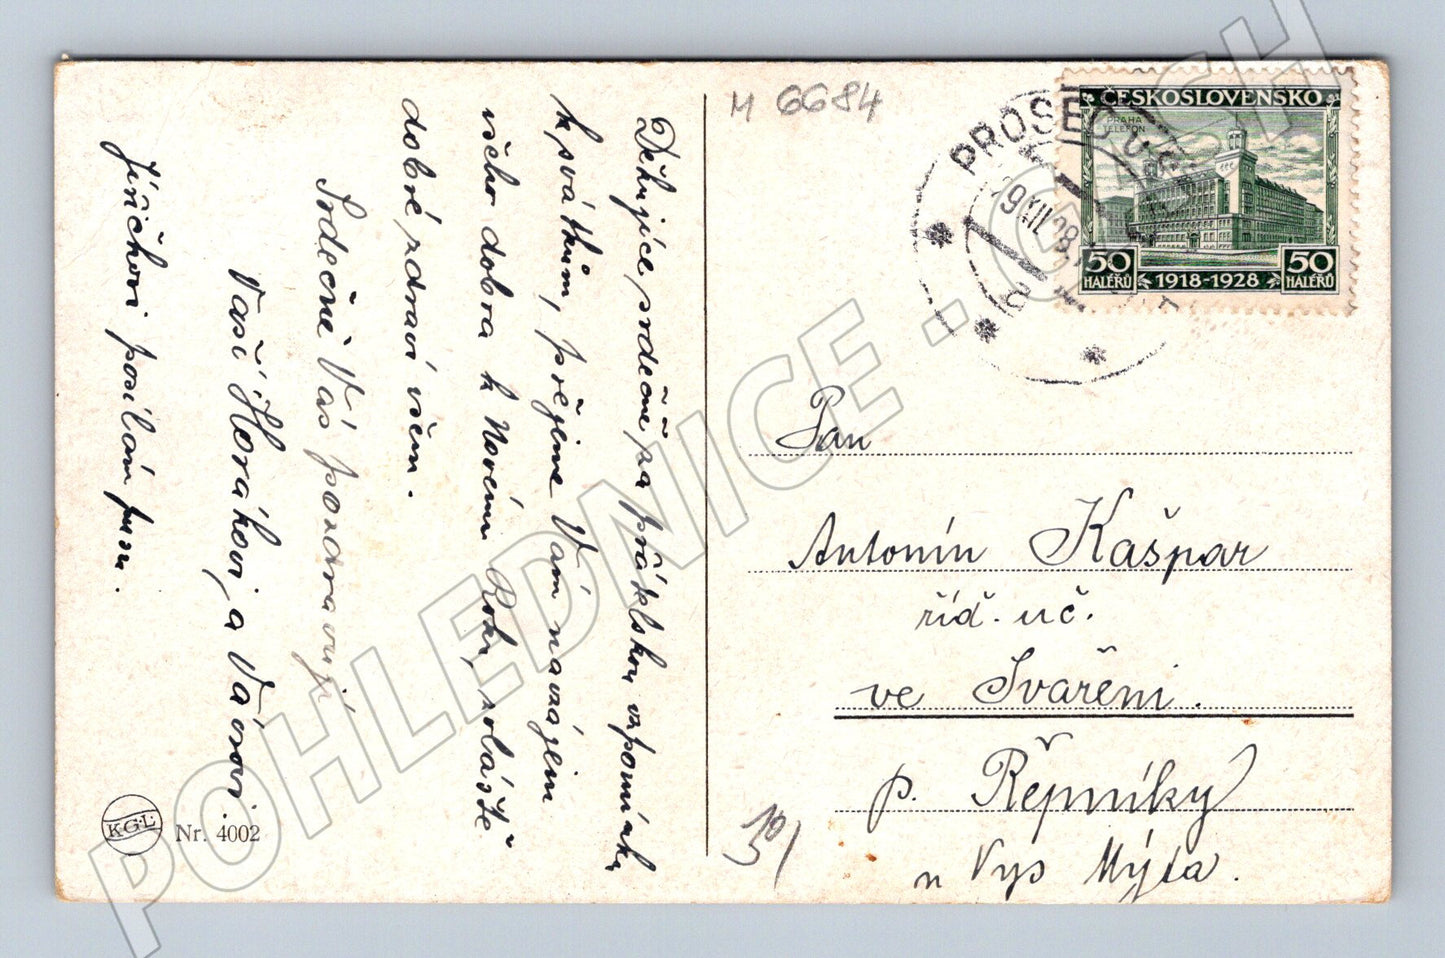 Děkujíce srdečně za přátelskou vzpomínku
k svátkům, přejeme Vám navzájem
všeho dobra k Novému Roku, zvláště
dobré zdraví všem.
Srdečně Vás pozdravují
Vaši Horákovi a Vávrovi.
Jiříčkovi posílám pusu.
K.G.L.
Nr. 4002
M 6684
PROSEČ U
ČESKOSLOVENSKO
PRAHA
TELEFON
50 HALÉŘŮ
1918-1928
50 HALÉŘŮ
Pan
Antonín Kašpar
říd. uč.
ve Svařeni.
p. Řepníky
u Vys Mýta.
10/
POHLEDNICE.CASH